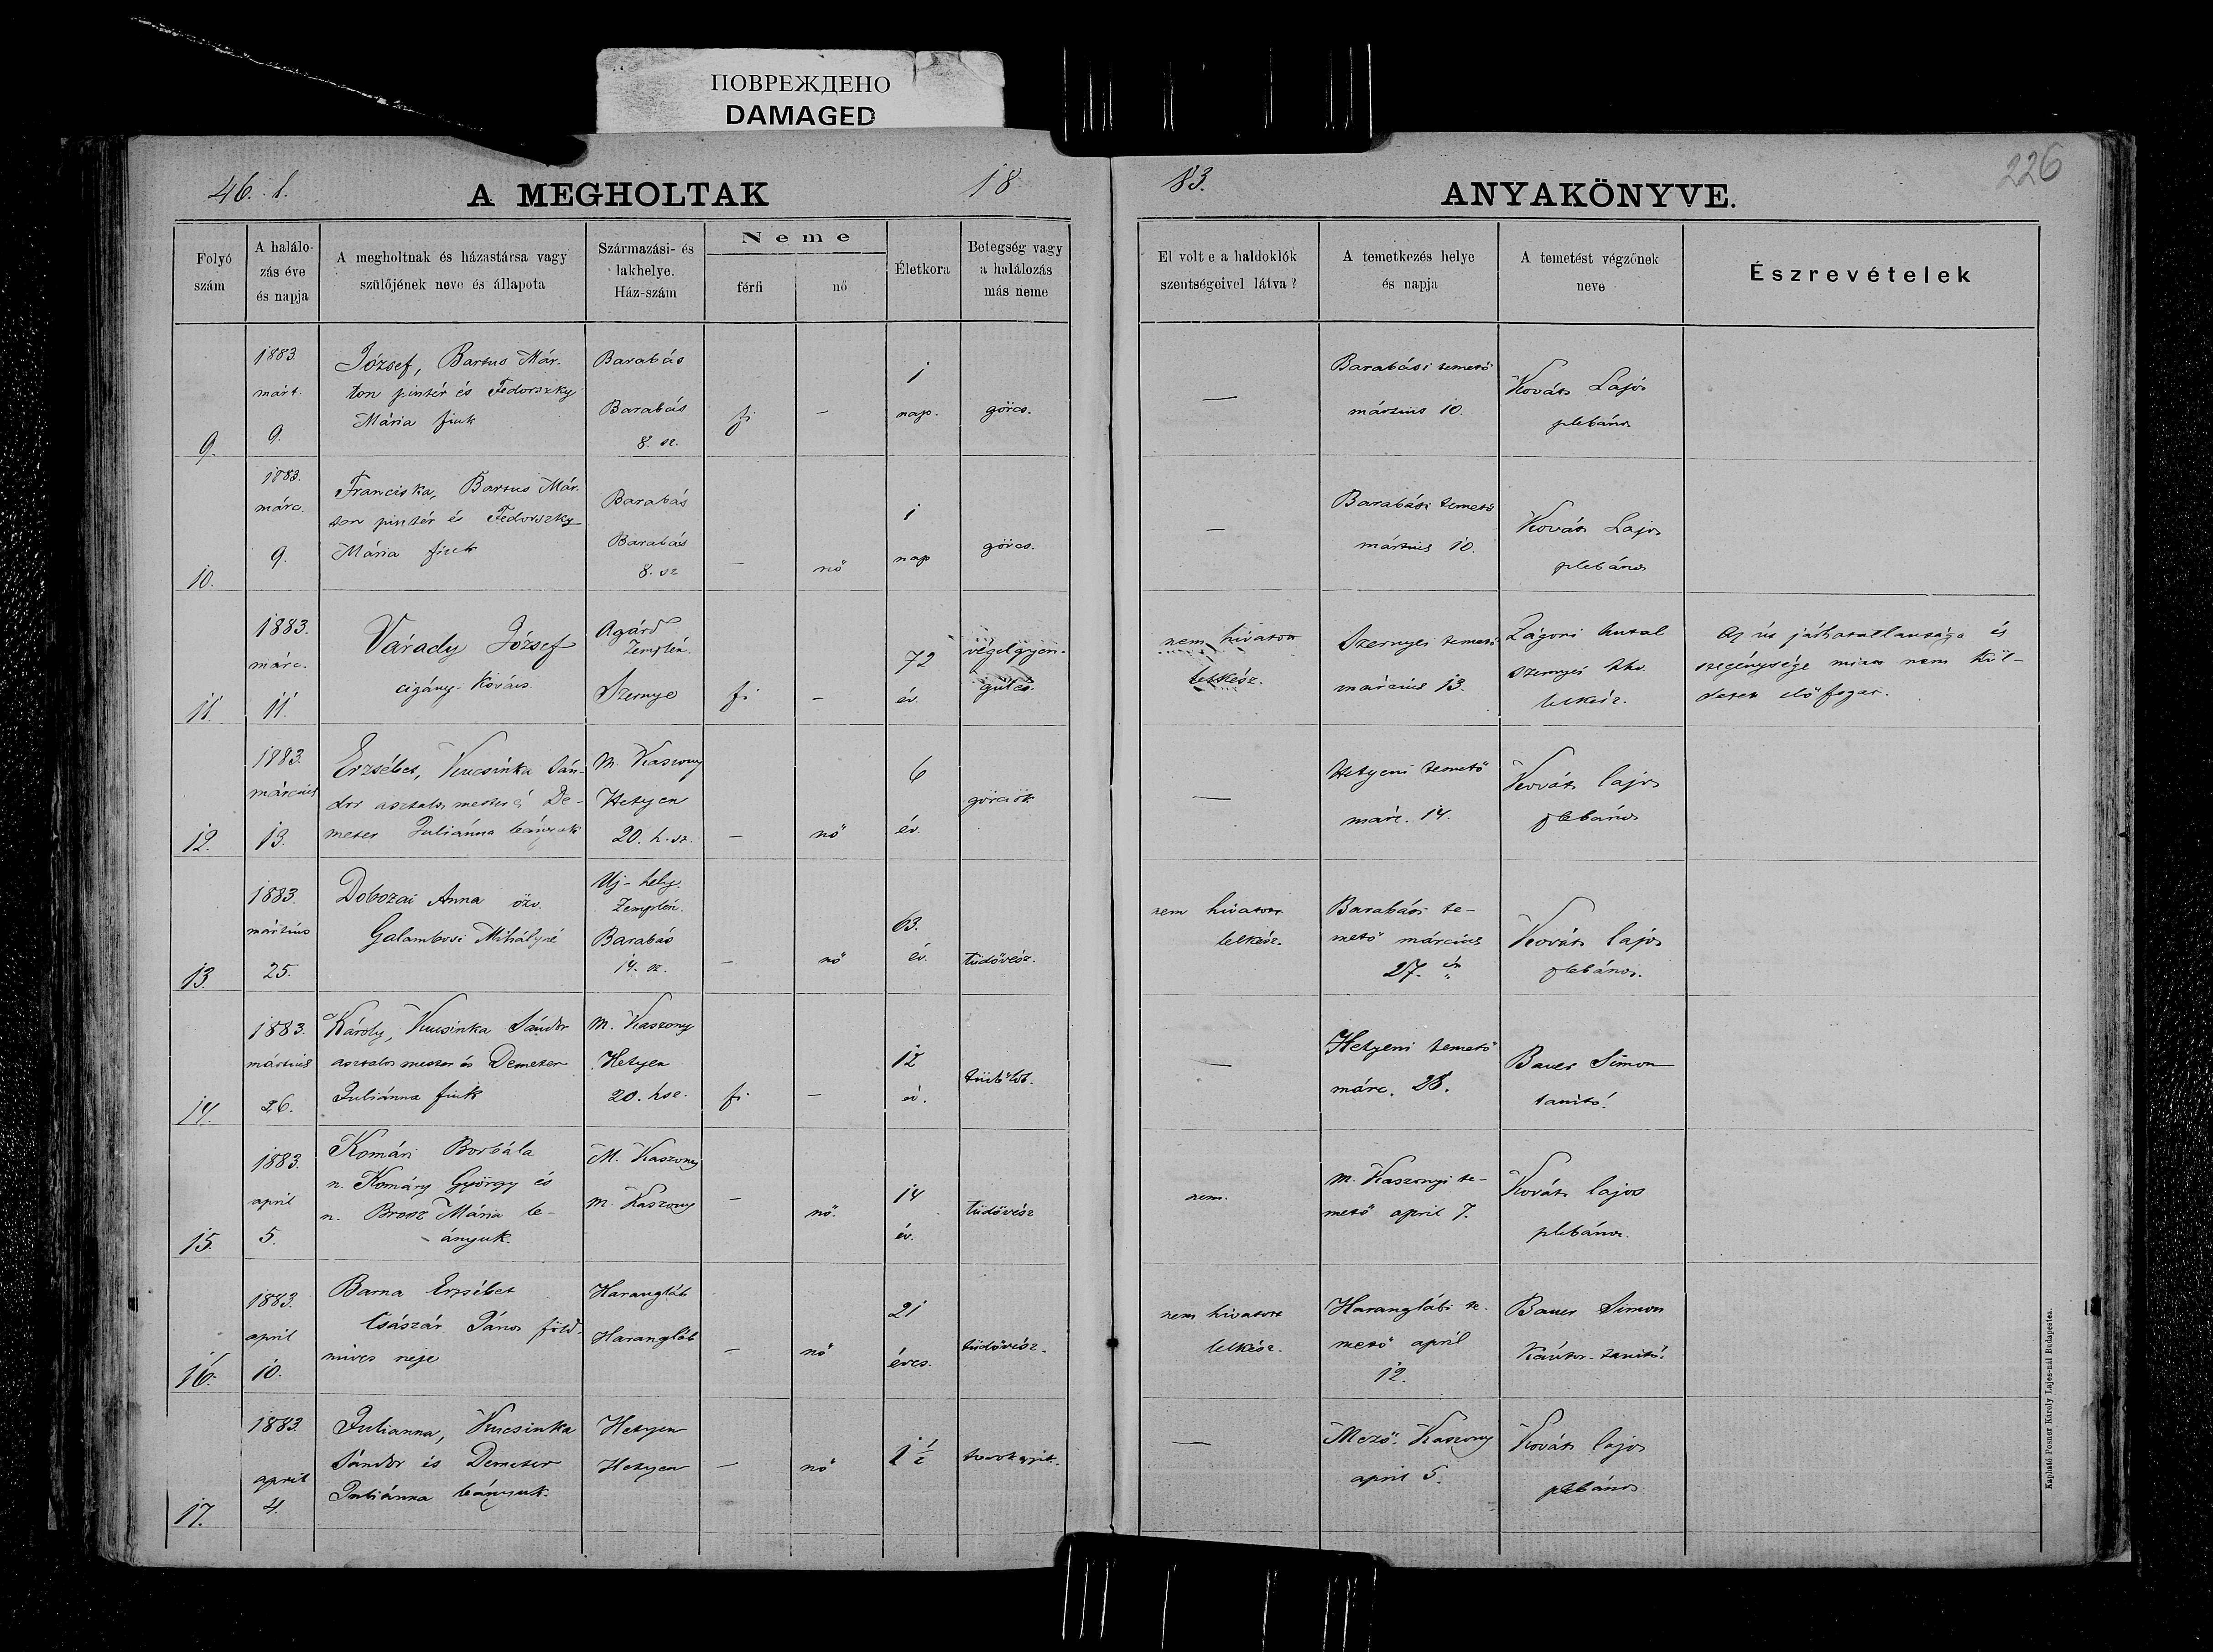 ПОВРЕЖДЕНО
DAMAGED
46. l.
A MEGHOLTAK
18
83.
ANYAKÖNYVE.
226
Folyó szám
A halálo-
zás éve
és napja
A megholtnak és házastársa vagy
szülőjének neve és állapota
Származási- és
lakhelye.
Ház-szám
Neme
férfi
nő
Életkora
Betegség vagy
a halálozás
más neme
El volt e a haldoklók
szentségeivel látva?
A temetkezés helye
és napja
A temetést végzőnek
neve
Észrevételek
9.
1883.
márt.
9.
József, Bartus Már-
ton pintér és Fedorszky
Mária fiuk
Barabás
Barabás
8. sz.
fi
–
1
nap.
görcs.
—
Barabási temető
március 10.
Kováts Lajos
plebános
10.
1883.
márc.
9.
Franciska, Bartus Már-
ton pintér és Fedorszky
Mária fiuk
Barabás
Barabás
8. sz
–
nő
1
nap
görcs.
–
Barabási temető
március 10.
Kováts Lajos
plebános
11.
1883.
márc.
11.
Várady József
cigány-kovács.
Agárd
Zemplén.
Szernye
fi
–
72
év.
végelgyen-
gülés.
nem hivatott
lelkész.
Szernyei temető
március 13.
Zágoni Antal
szernyei
lelkész.
Az út járhatatlansága és
szegénysége miatt nem kül-
dettek előfogat.
12.
1883.
március
13.
Erzsébet, Kucsinka Sán-
dor asztalos mester és De-
meter Juliánna leányuk
M. Kaszony
Hetyen
20. h. sz.
–
nő
6
év.
görcsök
—
Hetyeni temető
márc. 14.
Kováts lajos
plebános
13.
1883.
mártius
25.
Dobozai Anna özv.
Galambosi Mihályné
Uj-hely.
Zemplén.
Barabás
14. sz.
–
nő
63.
év.
tüdővész.
nem hivatott
lelkész.
Barabási te-
mető március
27. én
Kováts lajos
plebános.
14.
1883.
mártius
26.
Károly, Kucsinka Sándor
asztalos mester és Demeter
Juliánna fiuk
M. Kaszony
Hetyen
20. hsz.
fi
–
12
év.
—
Hetyeni temető
márc. 28.
Bauer Simon
tanitó.
15.
1883.
april
5.
Komári Borbála
n. Komáry György és
n. Brosz Mária le-
ányuk.
M. Kaszony
M. Kaszony
–
nő.
14
év.
tüdővész
nem.
M. Kaszonyi te-
mető april 7.
Kováts lajos
plebános.
16.
1883.
april
10.
Barna Erzsébet
Császár János föld-
míves neje
Harangláb
Harangláb
–
nő
21
éves.
tüdővész.
nem hivatott
lelkész.
Haranglábi te-
mető april
12.
Bauer Simon
Kántor-tanitó.
17.
1883.
april
4.
Julianna, Kucsinka
Sándor és Demeter
Juliánna leányuk.
Hetyen
Hetyen
–
nő
1 1/2
torokgyík.
—
Mező-Kaszony
april 5.
Kováts lajos
plebános
Kapható Posner Károly Lajos-nál Budapesten.